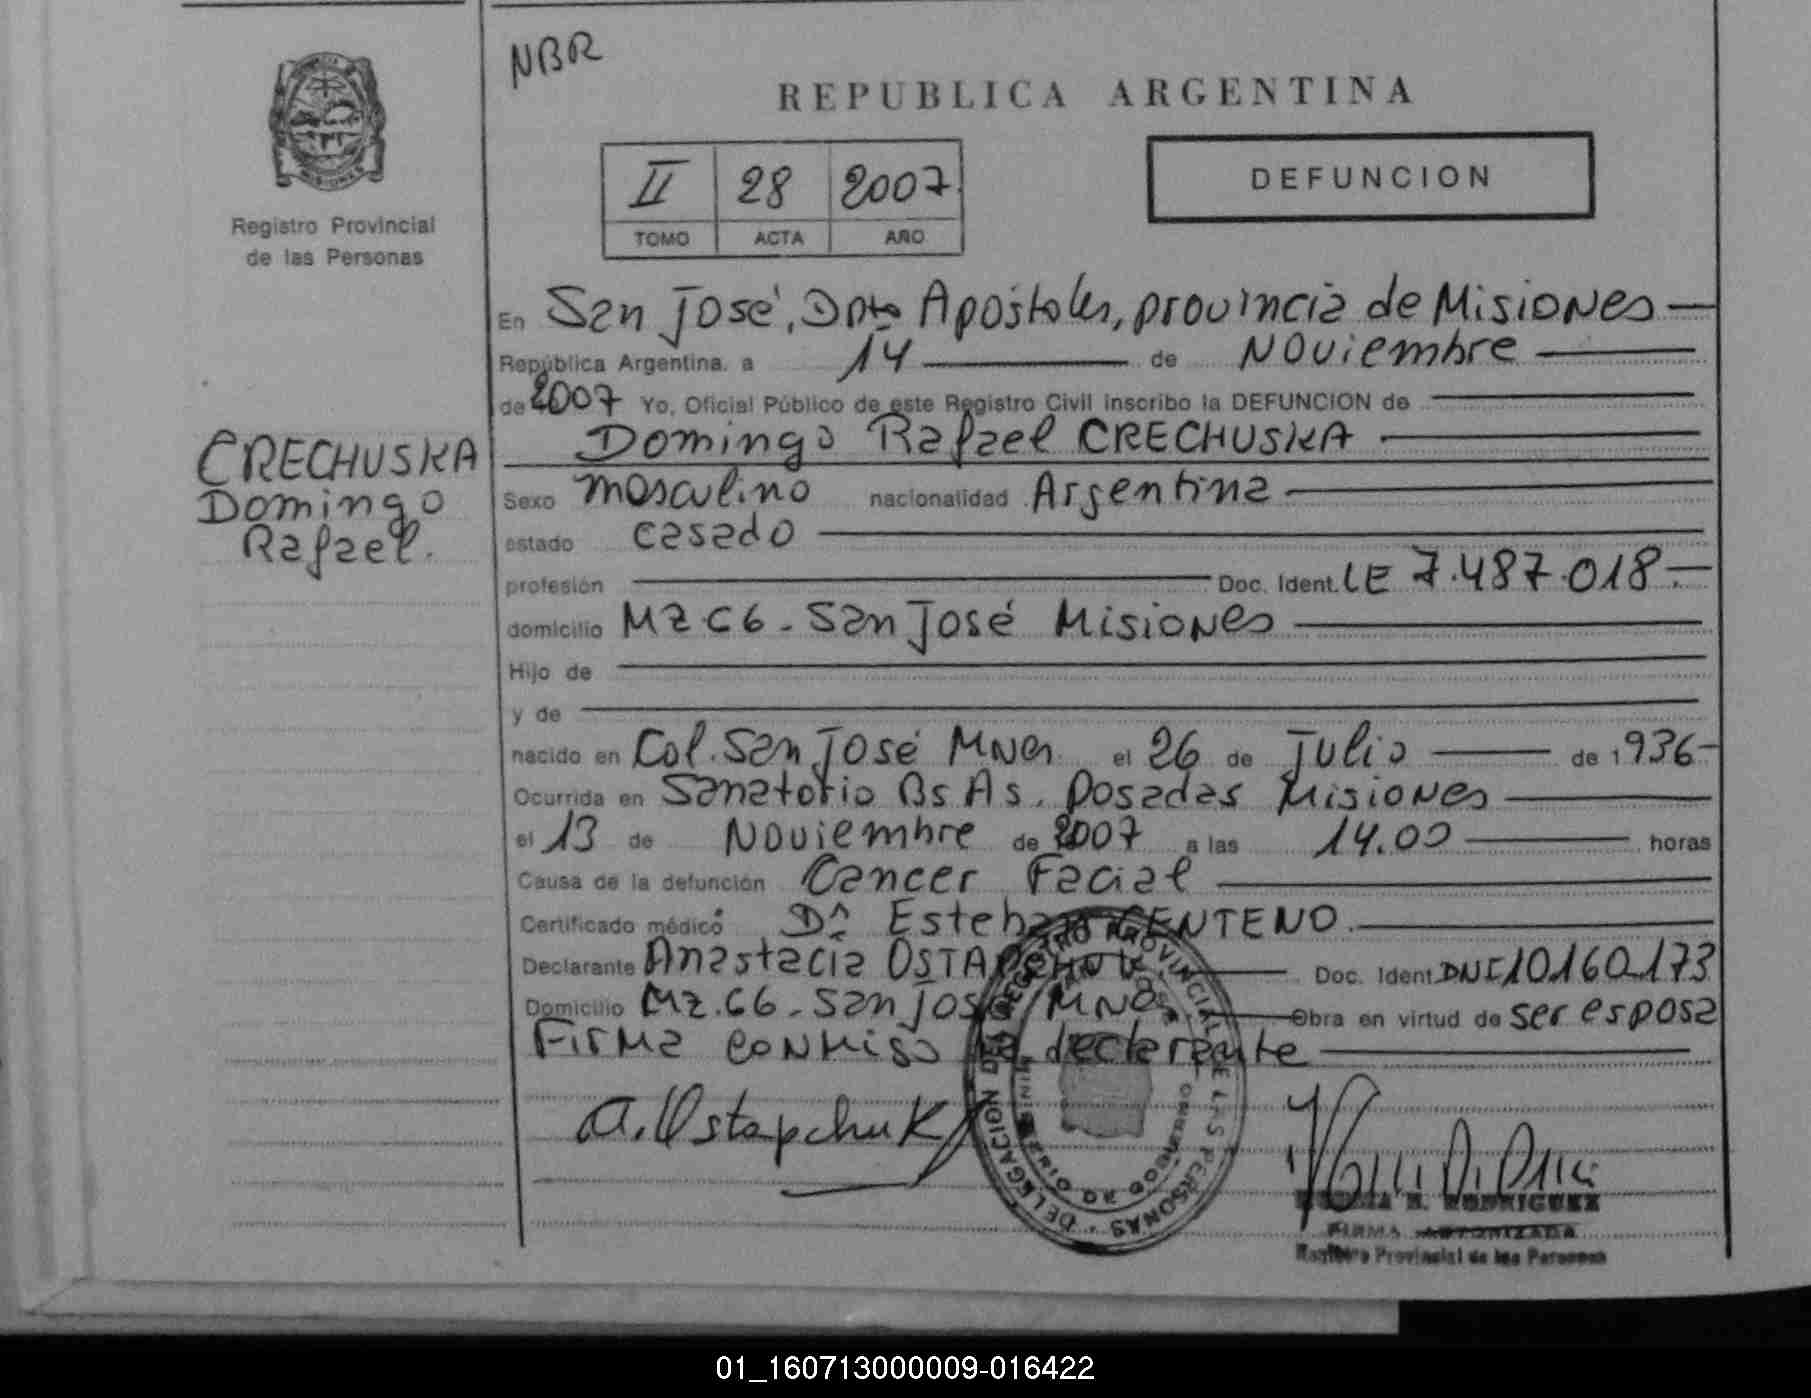 NBR
REPUBLICA ARGENTINA
II 28 2007
TOMO ACTA AÑO
DEFUNCION
MISIONES
Registro Provincial
de las Personas
CRECHUSKA
Domingo
Rafael.
En San José, Dpto Apóstoles, provincia de Misiones
República Argentina, a 14 de Noviembre
de 2007 Yo, Oficial Público de este Registro Civil inscribo la DEFUNCION de
Domingo Rafael CRECHUSKA
Sexo masculino nacionalidad Argentina
estado casado
profesión Doc. Ident. LE 7.487.018.-
domicilio MZ.C6 - San José Misiones
Hijo de
y de
nacido en Col. San José Mnes. el 26 de Julio de 1936-
Ocurrida en Sanatorio Bs As. Posadas Misiones
el 13 de Noviembre de 2007 a las 14.00 horas
Causa de la defunción Cancer Facial
Certificado médico Dr. Esteban CENTENO.
Declarante Anastacia OSTAPCHUK. Doc. Ident. DNI 10160.173
Domicilio MZ.C6 - San José MNES. Obra en virtud de ser esposa
Firma conmigo la declarante
A. Ostapchuk
DELEGACION DEL REGISTRO PROVINCIAL DE LAS PERSONAS
RODRIGUEZ
FIRMA AUTORIZADA
Registro Provincial de las Personas
01_160713000009-016422